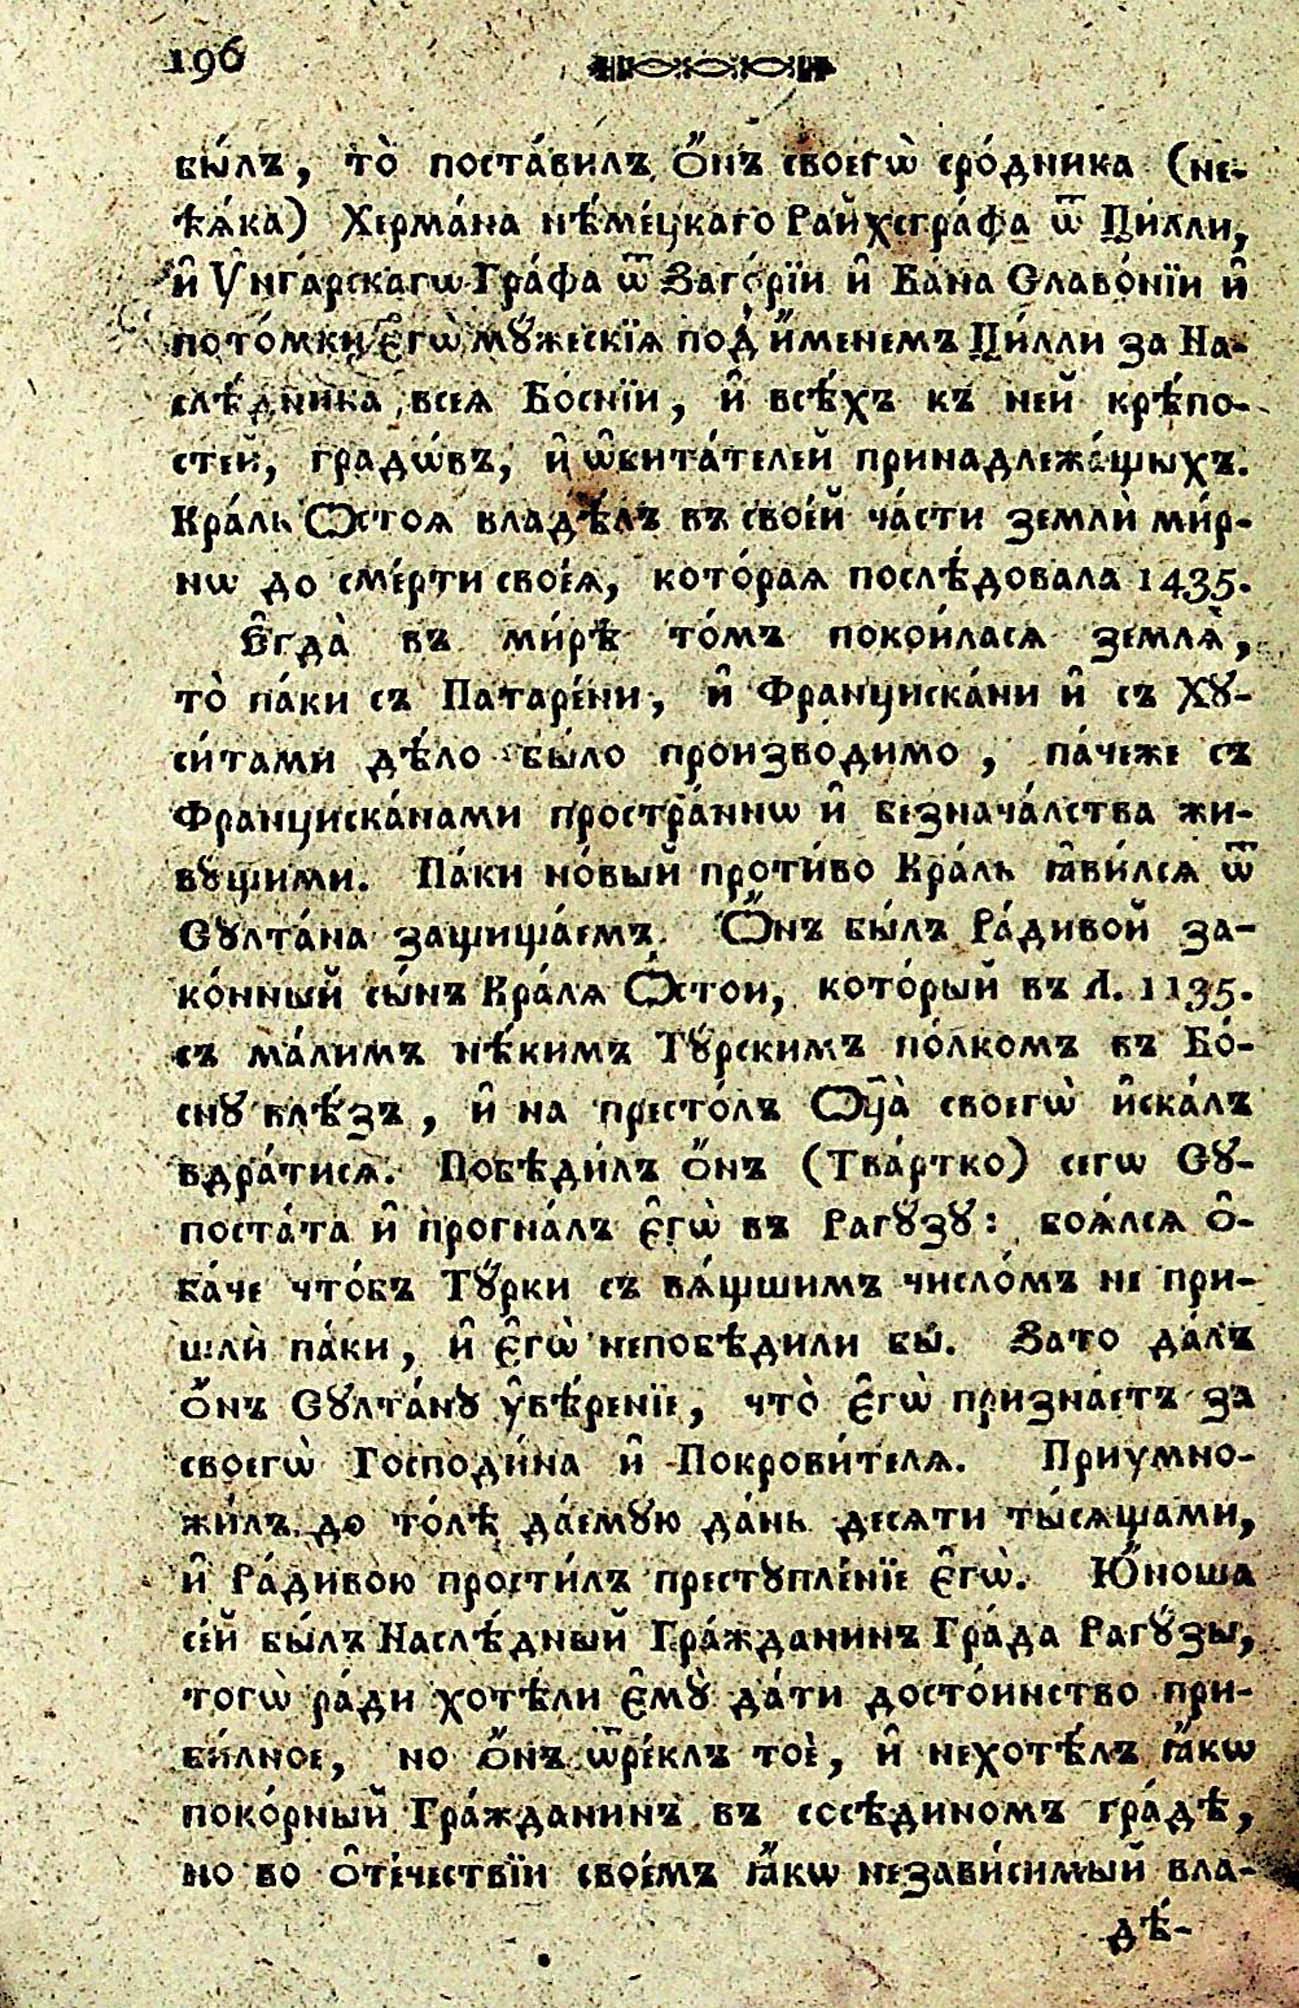 196
бы́лъ, то̀ поста́вилъ Ѻ҆́нъ своегѡ̀ сро́дника (не-
ѣѧ́ка) Херма́на нѣ́ме́цкаго Райхсгра́фа ѿ Ци́лли,
и҆ Ѵнга́рскагѡ Гра́фа ѿ Заго́рїи и҆ Ба́на Славо́нїи и҆
пото́мки є҆гѡ̀ мꙋ́жескїѧ под̾ и҆́менемъ Ци́лли за На-
слѣ́дника всеѧ Бо́снїи, и҆ всѣ́хъ къ ней крѣ́по-
стей, градѡ́въ, и҆ ѡ҆бита́телей принадлежа́щыхъ.
Кра́ль Ѻстоѧ владѣ́лъ въ свое́й ча́сти землѝ ми́р-
нѡ до сме́рти своеѧ́, кото́раѧ послѣ́довала 1435.
Є҆гда̀ въ ми́рѣ то́мъ поко́иласѧ землѧ̀,
то̀ па́ки съ Патаре́ни, и҆ Францискáни и҆ съ Хꙋ-
си́тами дѣ́ло бы́ло производимо, па́чеже съ
Францискáнами простра́ннѡ и҆ безнача́лства жи-
вꙋщими. Па́ки но́вый проти́во Кра́ль ꙗ҆ви́лсѧ ѿ
Сꙋлта́на защища́емъ. Ѻ҆́нъ бы́лъ Ра́дивой за-
ко́нный сы́нъ Кра́лѧ Ѻ́стои, кото́рый въ Л. 1135.
съ ма́лимъ нѣ́кимъ Тꙋ́рскимъ по́лкомъ въ Бо́-
снꙋ влѣ́зъ, и҆ на престо́лъ Ѻц҃а̀ своегѡ̀ и҆ска́лъ
вдра́тисѧ. Побѣди́лъ ѻ҆́нъ (Тва́ртко) сегѡ Сꙋ-
поста́та и҆ прогна́лъ є҆гѡ̀ въ Рагꙋ́зꙋ: боѧ́лсѧ ѻ҆-
ба́че что́бъ Тꙋ́рки съ вѧ́щшимъ число́мъ не при-
шлѝ па́ки, и҆ є҆гѡ̀ непобѣдили бы́. Зато да́лъ
ѻ҆́нъ Сꙋлта́нꙋ ᲂу҆вѣ́ренїе, что̀ є҆гѡ̀ призна́етъ за
своегѡ̀ Господи́на и҆ Покрови́телѧ. Приумно-
жи́лъ до то́лѣ да́емꙋю да́нь десѧти ты́сѧщами,
и҆ Ра́дивою прости́лъ престꙋпле́нїе є҆гѡ̀. Ю҆́ноша
се́й бы́лъ Наслѣ́дный Гра́жданинъ Гра́да Рагꙋ́зы,
тогѡ̀ ра́ди хотѣ́ли є҆мꙋ̀ да́ти досто́инство при-
би́лное, но ѻ҆́нъ ѿре́клъ тоѐ, и҆ нехотѣ́лъ ꙗ҆́кѡ
поко́рный Гра́жданинъ въ сосѣ́диномъ гра́дѣ,
но во ѻ҆те́чествїи свое́мъ ꙗ҆́кѡ незави́симый вла-
дѣ́-